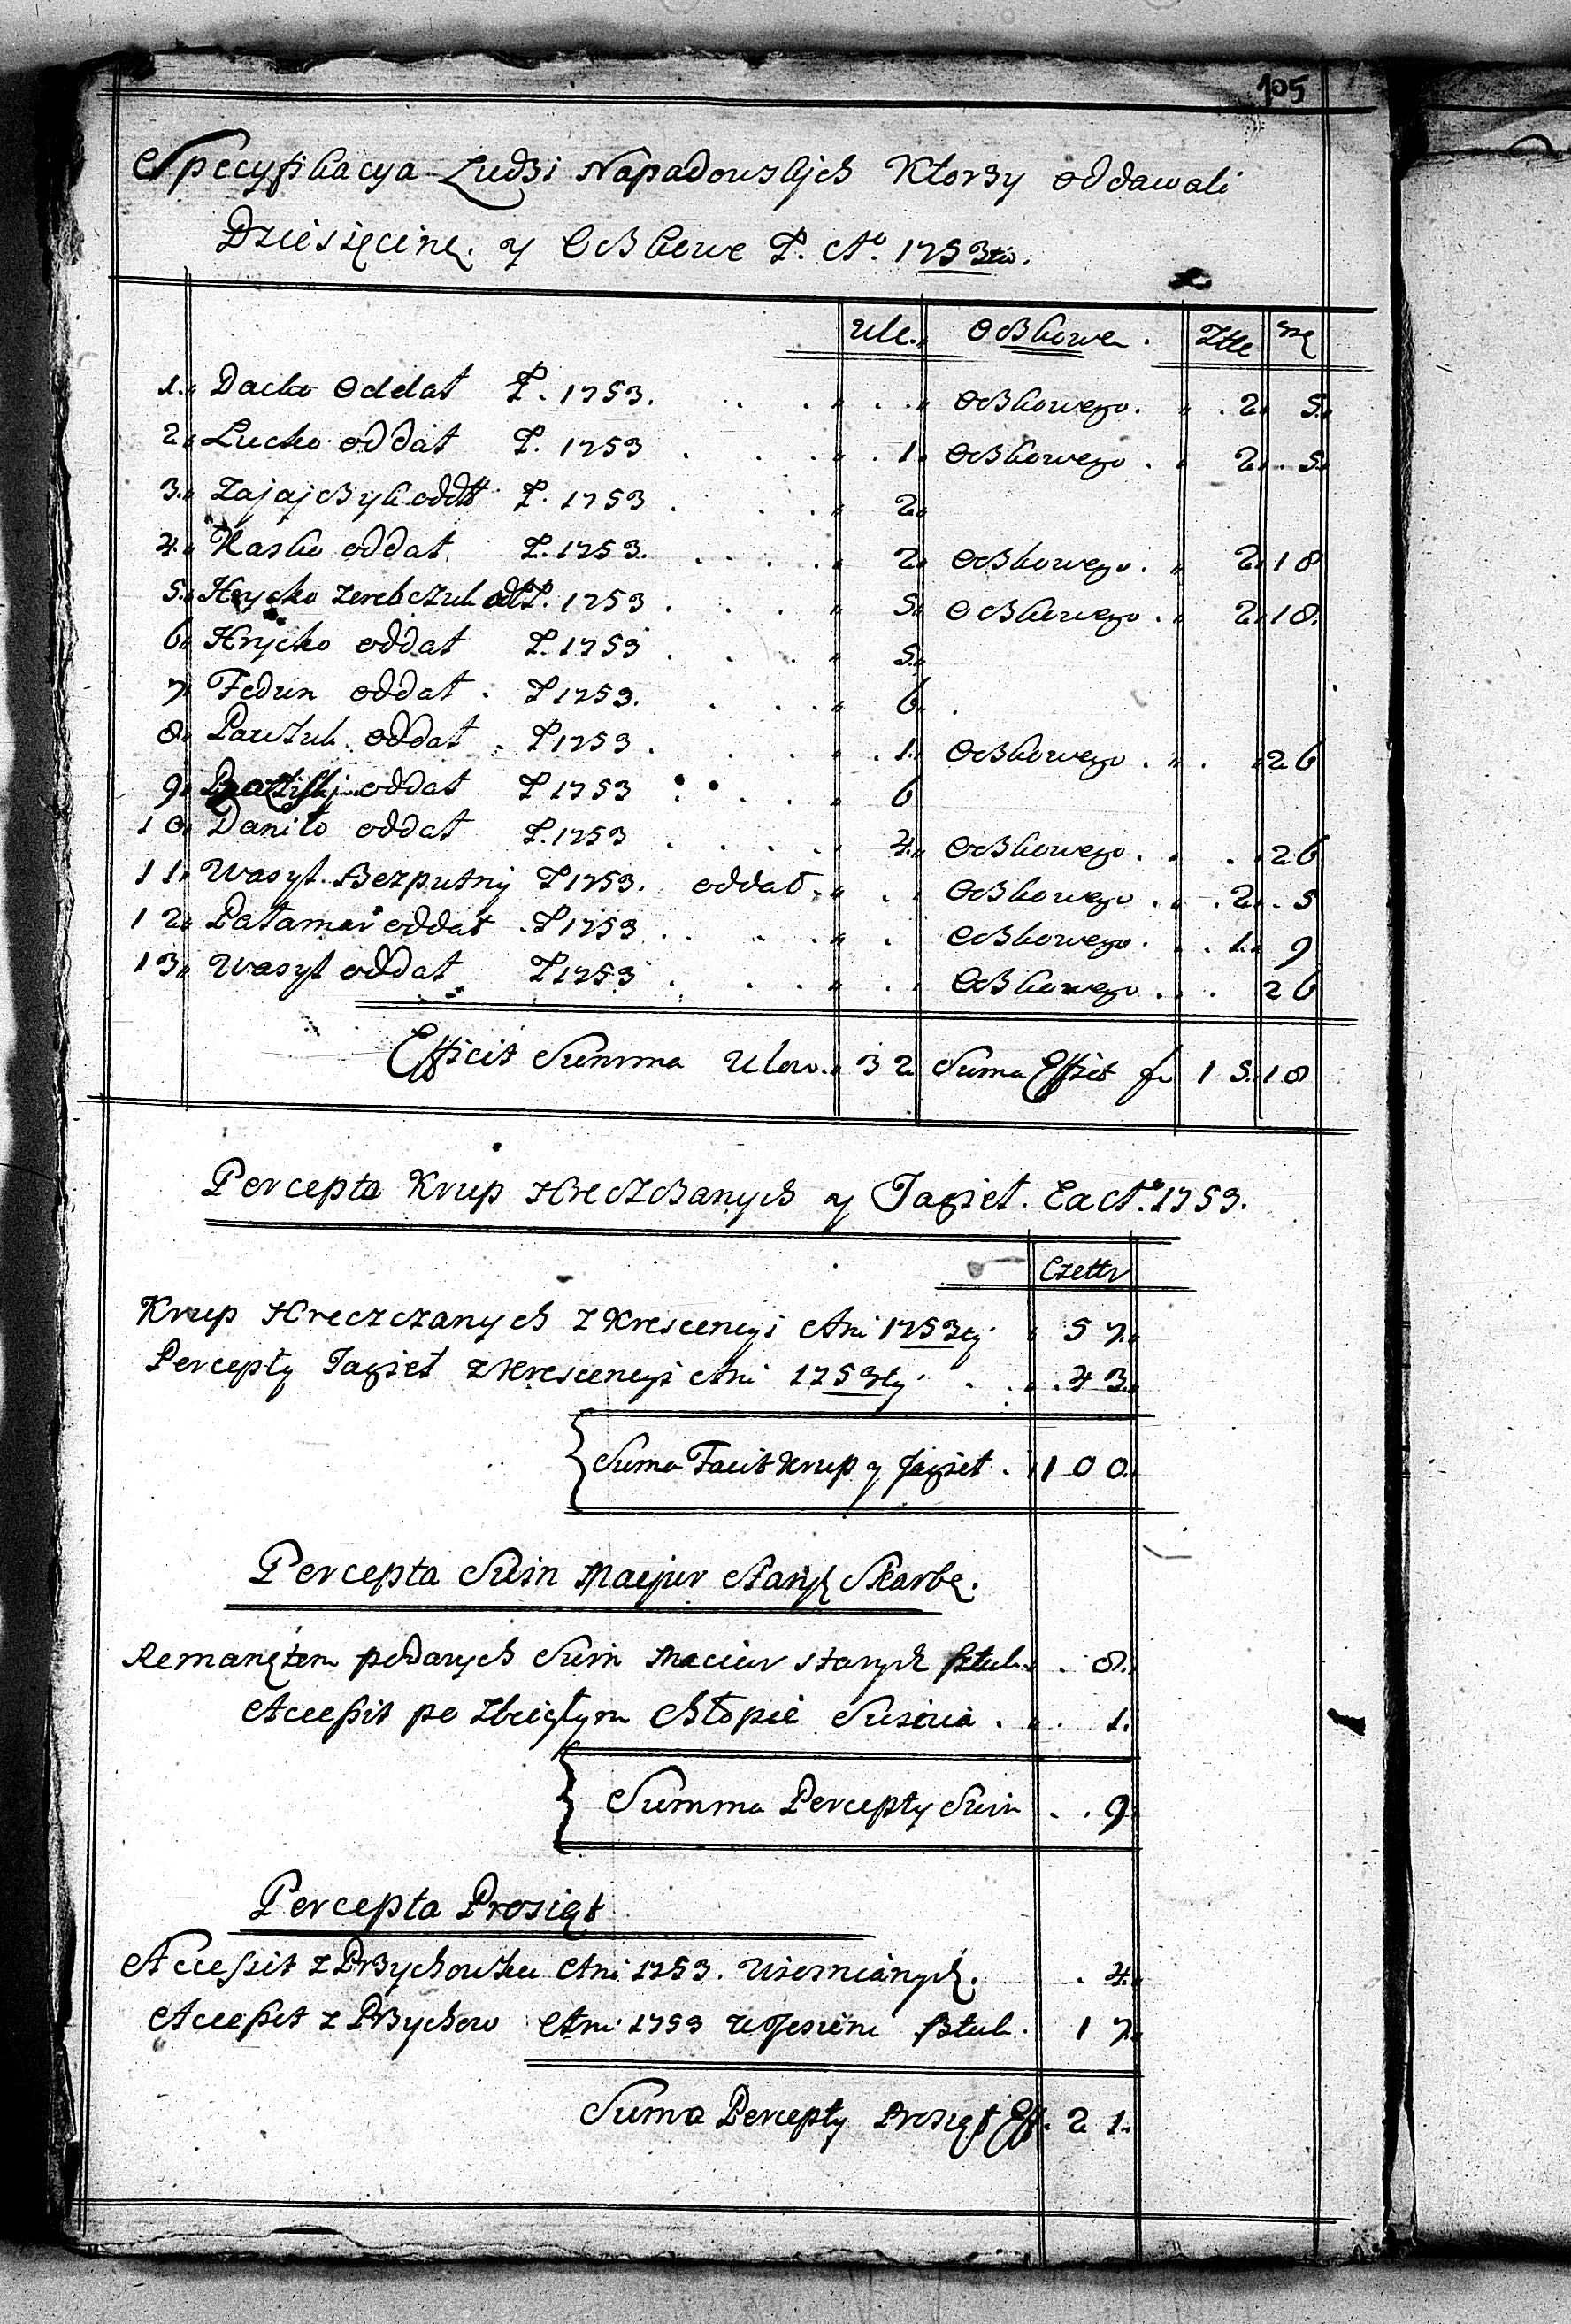 105
Specyfikacya Ludzi Napadowskich Ktorzy oddawali
Dziesięcinę y Oczkowe P. Ao. 1753tio.
Ule. Oczkowe. Złłe gr
1. Dacko Oddał P. 1753. Oczkowego. 2 5
2. Lucko oddał P. 1753 1 Oczkowego. 2 5
3. Zajączyk oddł P. 1753 2
4. Hasko oddał P. 1753. 2 Oczkowego. 2 18
5. Hrycko Zerebczuk odł P. 1753 5 Oczkowego. 2 18
6 Hrycko oddał P. 1753 5
7 Fedun oddał P 1753. 6
8 Pawluk oddał P 1753. 1 Oczkowego 26
9 oddał P 1753 6
10 Daniło oddał P. 1753 4 Oczkowego. 26
11 Wasyl Bezputny P 1753. oddał Oczkowego 2 5
12 Pałamar oddał P 1753 Oczkowego. 1 9
13 Wasyl oddał P 1753 Oczkowego 26
Efficit Summa Ulow. 32 Suma Effict fl 15 18
Percepta Krup Hreczanych y Jagieł. Ea Ao. 1753.
Czettr
Krup Hreczczanych z Krescencyi Ani 1753cij 57
Percepty Jagieł z Krescencyi Ani 1753cij 43
Suma Facit Krup y Jagieł 100
Percepta Swin Macjur Starych Skarbę.
Remanętem podanych Swin Maciur starych sztuk 8
Accessit po zbiegłym Chłopie Swinia 1.
Summa Percepty Swin 9
Percepta Prosiąt
Accessit z Przychowku Ani 1753. Wiosnianych. 4
Accessit z Przychow Ani 1753 w Jesieni sztuk. 17
Suma Percepty Prosiąt Eff. 21